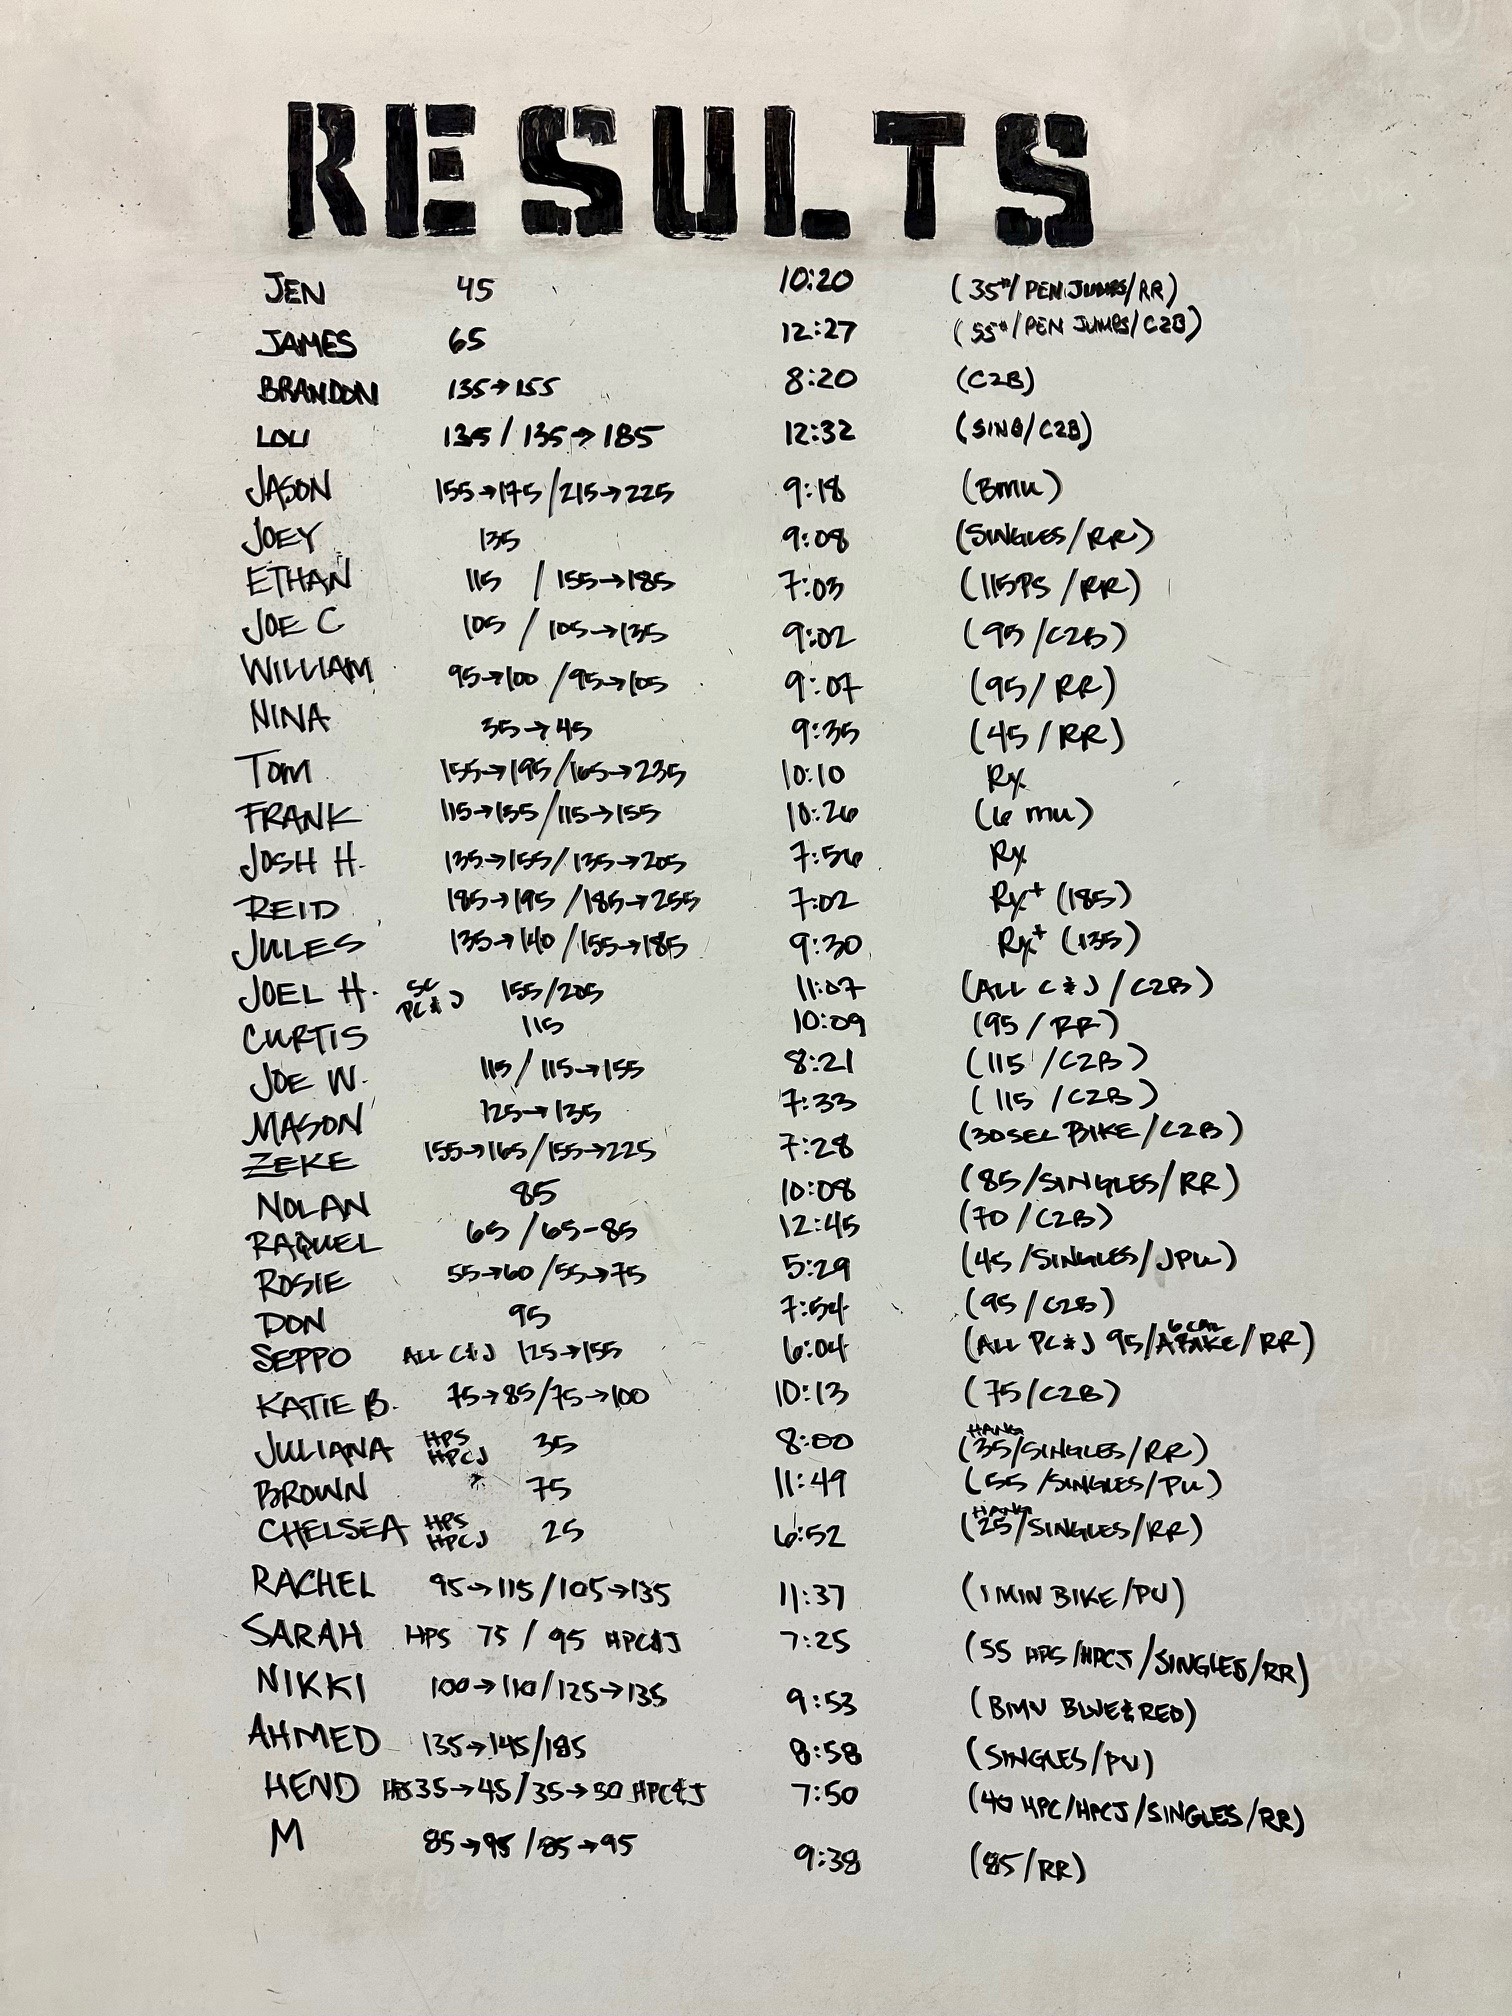 RESULTS
JEN 45 10:20 (35#/PEN JUMPS/RR)
JAMES 65 12:27 (55#/PEN JUMPS/C2B)
BRANDON 135→155 8:20 (C2B)
LOU 135/135→185 12:32 (SING/C2B)
JASON 155→175/215→225 9:18 (BMU)
JOEY 135 9:08 (SINGLES/RR)
ETHAN 115 / 155→185 7:03 (115PS/RR)
JOE C 105 / 105→135 9:02 (95/C2B)
WILLIAM 95→100 /95→105 9:07 (95/RR)
NINA 35→45 9:35 (45/RR)
TOM 155→195/165→235 10:10 Rx
FRANK 115→135/115→155 10:26 (6 MU)
JOSH H. 135→155/135→205 7:56 Rx
REID 185→195 /185→255 7:02 Rx+ (185)
JULES 135→140 /155→185 9:30 Rx+ (135)
JOEL H. SC PC&J 155/205 11:07 (ALL C&J/C2B)
CURTIS 115 10:09 (95/RR)
JOE W. 115/115→155 8:21 (115/C2B)
MASON 125→135 7:33 (115/C2B)
ZEKE 155→165/155→225 7:28 (30SEC BIKE/C2B)
NOLAN 85 10:08 (85/SINGLES/RR)
RAQUEL 65/65-85 12:45 (70/C2B)
ROSIE 55→60/55→75 5:29 (45/SINGLES/JPU)
DON 95 7:54 (95/C2B)
SEPPO ALL C&J 125→155 6:04 (ALL PC&J 95/6 CAL ABIKE/RR)
KATIE B. 75→85/75→100 10:13 (75/C2B)
JULIANA HPS HPCJ 35 8:00 (HANG 35/SINGLES/RR)
BROWN 75 11:49 (55/SINGLES/PU)
CHELSEA HPS HPCJ 25 6:52 (HANG 25/SINGLES/RR)
RACHEL 95→115/105→135 11:37 (1 MIN BIKE/PU)
SARAH HPS 75 / 95 HPC&J 7:25 (55 HPS/HPCJ/SINGLES/RR)
NIKKI 100→110/125→135 9:53 (BMU BLUE&RED)
AHMED 135→145/185 8:58 (SINGLES/PU)
HEND 35→45/35→50 HPC&J 7:50 (40 HPC/HPCJ/SINGLES/RR)
M 85→95/85→95 9:38 (85/RR)